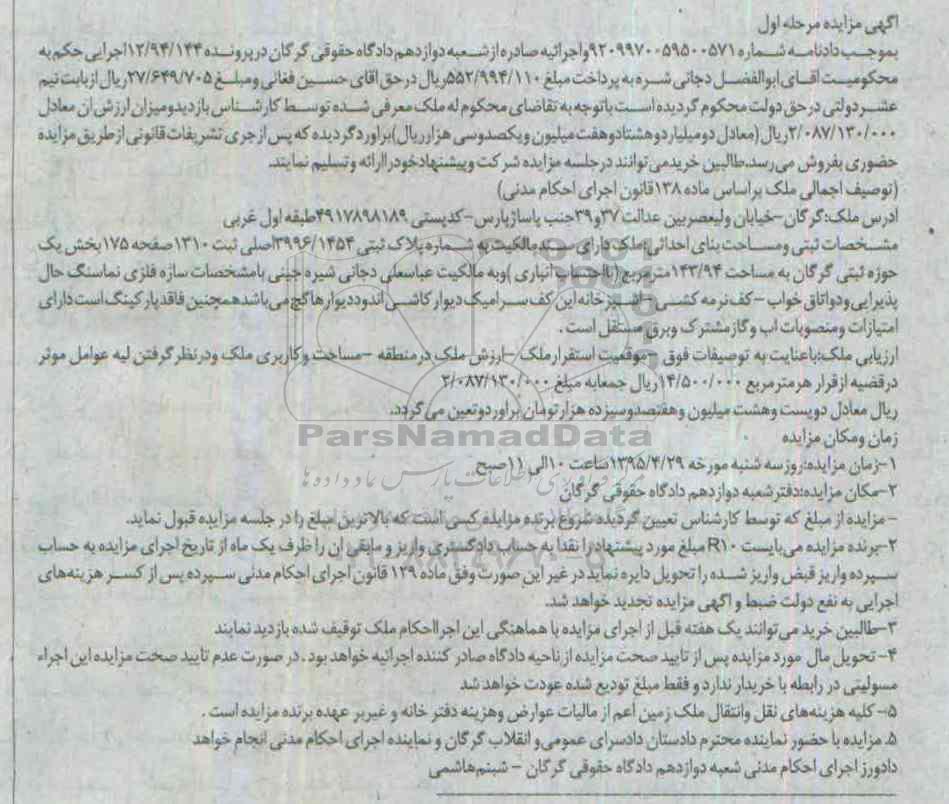 آگهی مزایده مرحله اول
بموجب دادنامه شماره ۹۲۰۹۹۷۰۰۵۹۵۰۰۵۷۱ واجرائیه صادره از شعبه دوازدهم دادگاه حقوقی گرگان در پرونده ۱۲/۹۴/۱۴۴ اجرایی حکم به
محکومیت آقای ابوالفضل دجانی شره به پرداخت مبلغ ۵۵۲/۹۹۴/۱۱۰ ریال در حق اقای حسین فغانی و مبلغ ۲۷/۶۴۹/۷۰۵ ریال از بابت نیم
عشر دولتی در حق دولت محکوم گردیده است با توجه به تقاضای محکوم له ملک معرفی شده توسط کارشناس بازدید و میزان ارزش ان معادل
۲/۰۸۷/۱۳۰/۰۰۰ ریال (معادل دو میلیارد و هشتاد و هفت میلیون و یکصد و سی هزار ریال) براورد گردیده که پس از جری تشریفات قانونی از طریق مزایده
حضوری بفروش می رسد. طالبین خرید می توانند در جلسه مزایده شرکت و پیشنهاد خود را ارائه و تسلیم نمایند.
(توصیف اجمالی ملک بر اساس ماده ۱۳۸ قانون اجرای احکام مدنی)
ادرس ملک: گرگان - خیابان ولیعصر بین عدالت ۳۷ و ۳۹ جنب پاساژ پارس - کدپستی ۴۹۱۷۸۹۸۱۸۹ طبقه اول غربی
مشخصات ثبتی و مساحت بنای احداثی: ملک دارای سند مالکیت به شماره پلاک ثبتی ۳۹۹۶/۱۴۵۴ اصلی ثبت ۱۳۱۰ صفحه ۱۷۵ بخش یک
حوزه ثبتی گرگان به مساحت ۱۴۳/۹۴ متر مربع (با احتساب انباری) و به مالکیت عباسعلی دجانی شیره جینی با مشخصات سازه فلزی نماسنگ حال
پذیرایی و دو اتاق خواب - کف نرمه کشی - اشپزخانه این کف سرامیک دیوار کاشی اندود دیوارها گچ می باشد همچنین فاقد پارکینگ است دارای
امتیازات و منصوبات اب و گاز مشترک و برق مستقل است.
ارزیابی ملک: با عنایت به توصیفات فوق - موقعیت استقرار ملک - ارزش ملک در منطقه - مساحت و کاربری ملک و در نظر گرفتن لیه عوامل موثر
در قضیه از قرار هر متر مربع ۱۴/۵۰۰/۰۰۰ ریال جمعا به مبلغ ۲/۰۸۷/۱۳۰/۰۰۰
ریال معادل دویست و هشت میلیون و هفتصد و سیزده هزار تومان براورد و تعین می گردد.
زمان و مکان مزایده
۱- زمان مزایده: روز سه شنبه مورخه ۱۳۹۵/۴/۲۹ ساعت ۱۰ الی ۱۱ صبح
۲- مکان مزایده: دفتر شعبه دوازدهم دادگاه حقوقی گرگان
- مزایده از مبلغ که توسط کارشناس تعیین گردیده شروع برنده مزایده کسی است که بالاترین مبلغ را در جلسه مزایده قبول نماید.
۲- برنده مزایده می بایست R۱۰ مبلغ مورد پیشنهاد را نقدا به حساب دادگستری واریز و مابقی ان را ظرف یک ماه از تاریخ اجرای مزایده به حساب
سپرده واریز قبض واریز شده را تحویل دایره نماید در غیر این صورت وفق ماده ۱۲۹ قانون اجرای احکام مدنی سپرده پس از کسر هزینه های
اجرایی به نفع دولت ضبط و اگهی مزایده تجدید خواهد شد.
۳- طالبین خرید می توانند یک هفته قبل از اجرای مزایده با هماهنگی این اجرا احکام ملک توقیف شده بازدید نمایند
۴- تحویل مال مورد مزایده پس از تایید صحت مزایده از ناحیه دادگاه صادر کننده اجرائیه خواهد بود. در صورت عدم تایید صحت مزایده این اجراء
مسولیتی در رابطه با خریدار ندارد و فقط مبلغ تودیع شده عودت خواهد شد
۵- کلیه هزینه های نقل و انتقال ملک زمین اعم از مالیات عوارض و هزینه دفتر خانه و غیر بر عهده برنده مزایده است.
۵. مزایده با حضور نماینده محترم دادستان دادسرای عمومی و انقلاب گرگان و نماینده اجرای احکام مدنی انجام خواهد
دادورز اجرای احکام مدنی شعبه دوازدهم دادگاه حقوقی گرگان - شبنم هاشمی
ParsNamadData